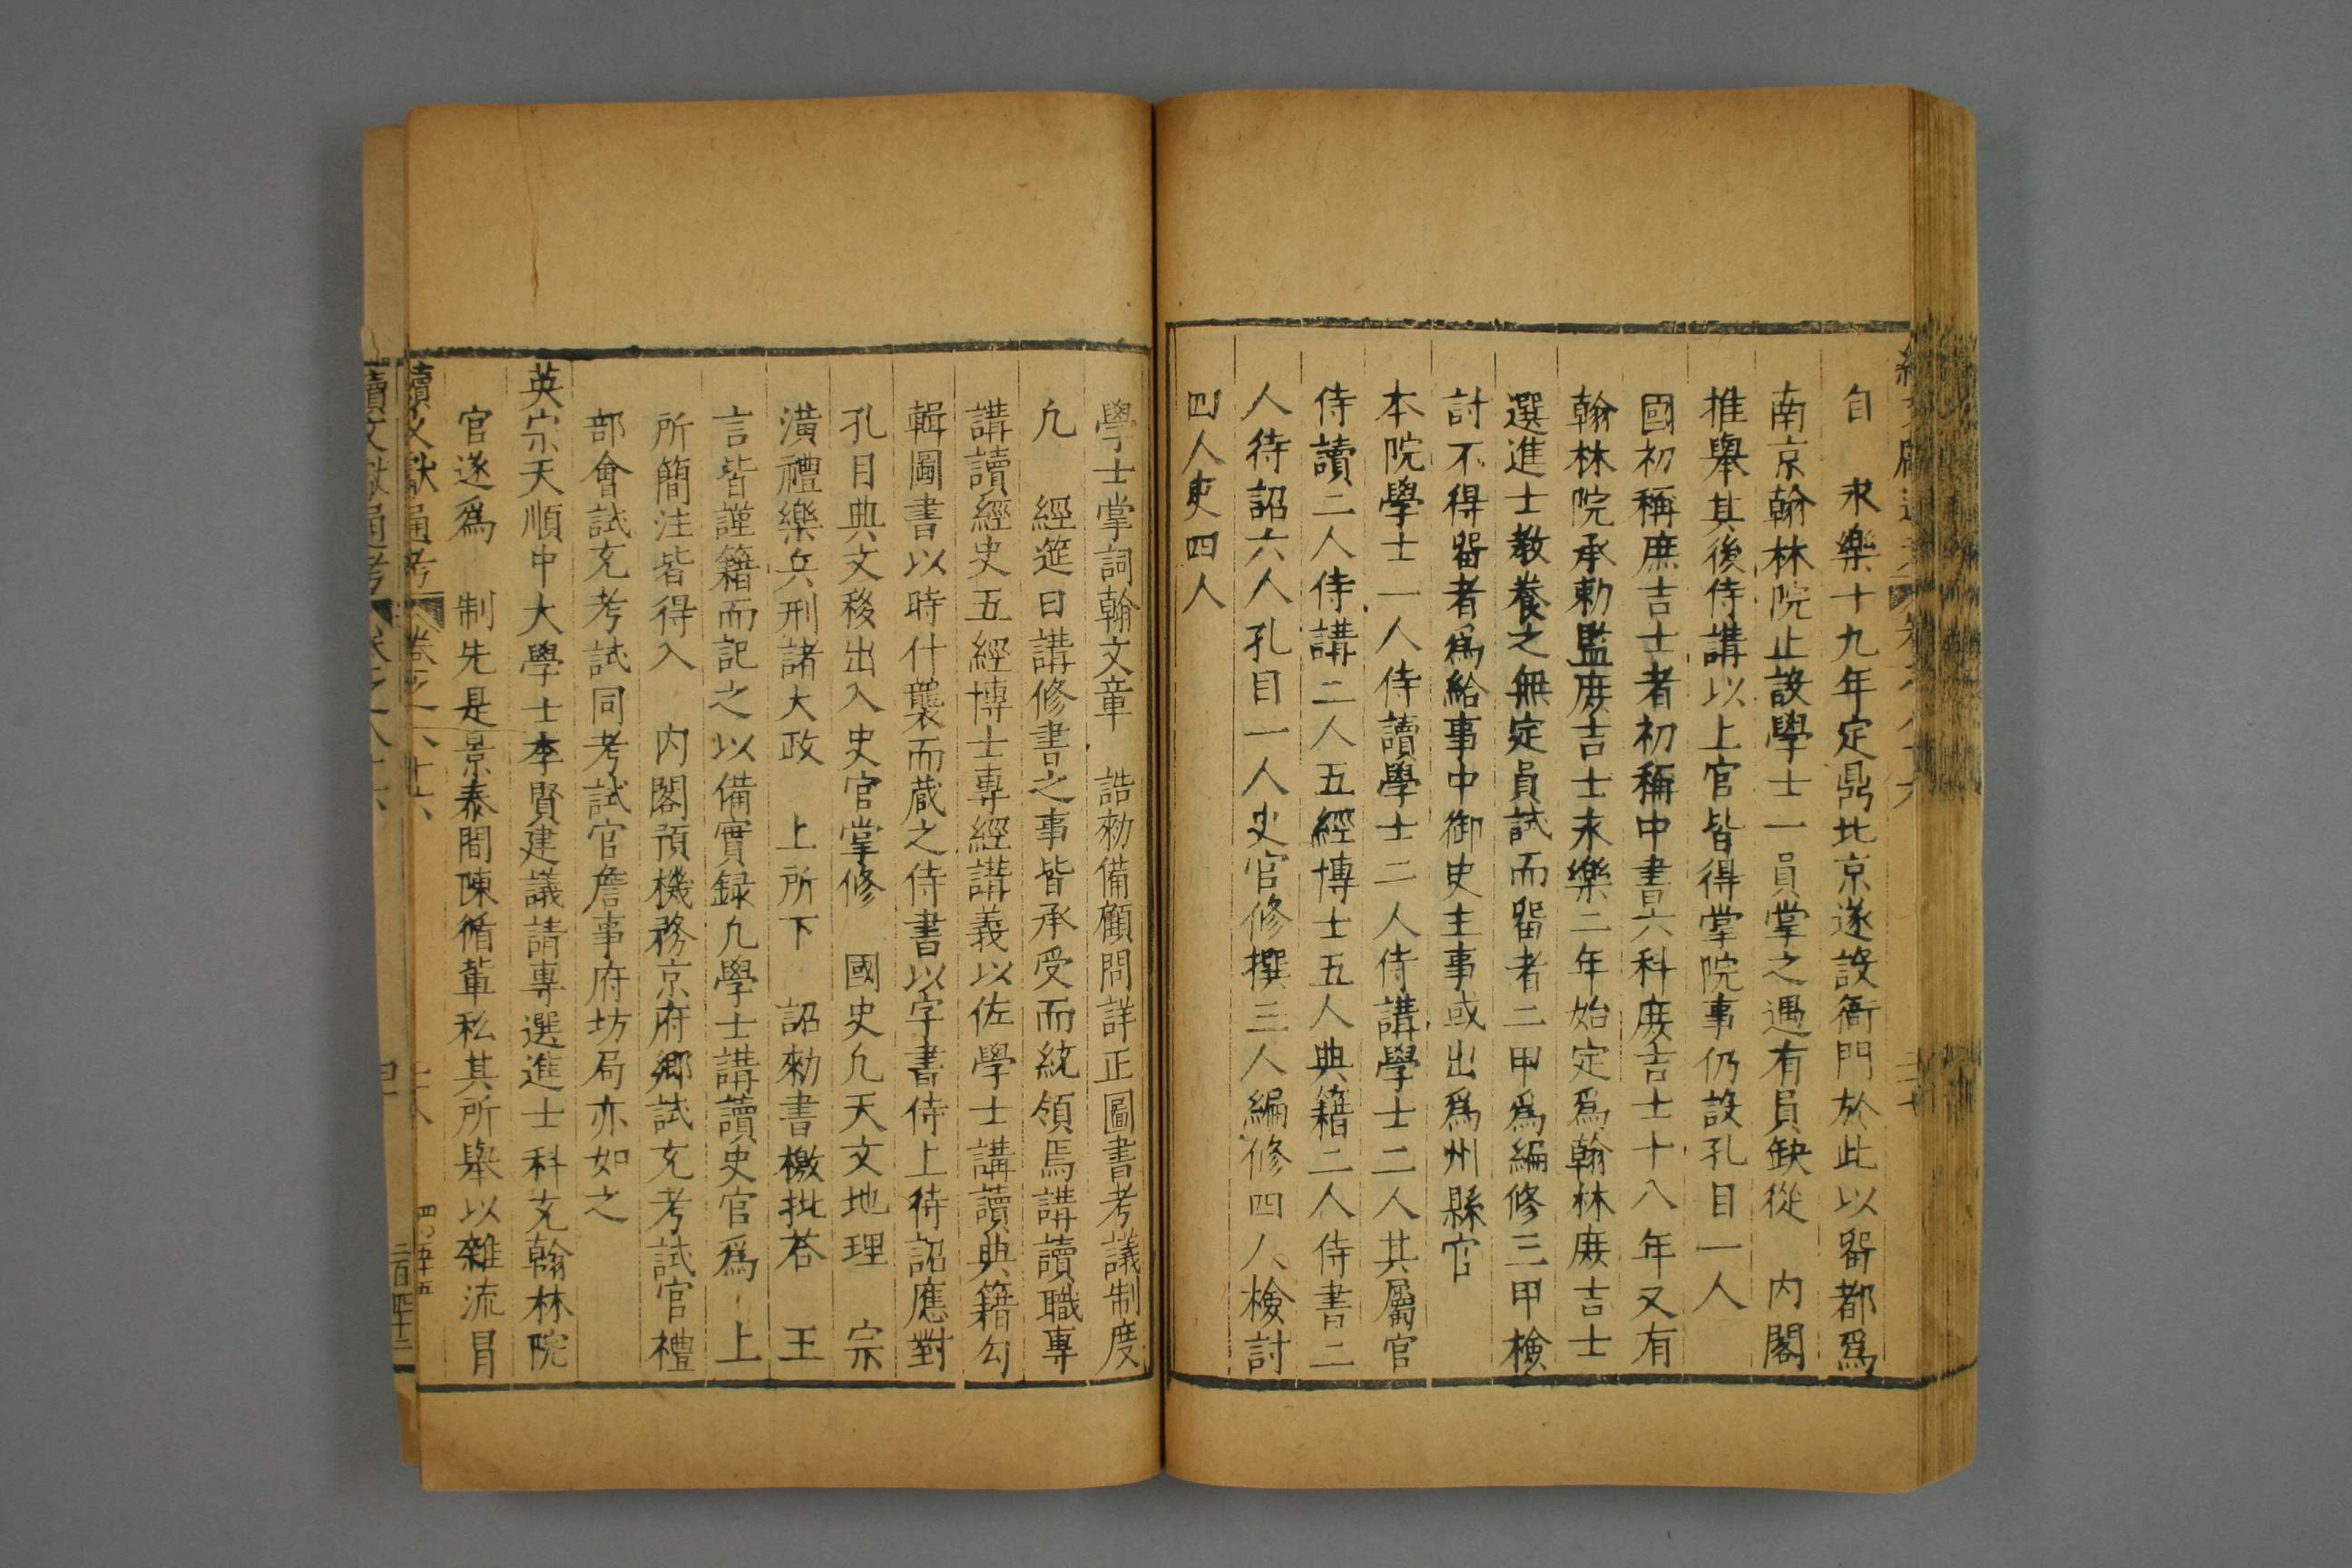 自　永樂十九年定鼎北京遂設衙門於此以畱都爲
南京翰林院止設學士一員掌之遇有員缺從　内閣
推舉其後侍講以上官皆得掌院事仍設孔目一人
國初稱庶吉士者初稱中書六科庶吉士十八年又有
翰林院承勅監庶吉士永樂二年始定爲翰林庶吉士
選進士教養之無定員試而畱者二甲爲編修三甲檢
討不得畱者爲給事中御史主事或出爲州縣官
本院學士一人侍讀學士二人侍講學士二人其屬官
侍讀二人侍講二人五經博士五人典籍二人侍書二
人待詔六人孔目一人史官修撰三人編修四人檢討
四人吏四人
學士掌詞翰文章　誥勑備顧問詳正圖書考議制度
凢　經筵日講修書之事皆承受而統領焉講讀職專
講讀經史五經博士專經講義以佐學士講讀典籍勾
輯圖書以時什襲而藏之侍書以字書侍上待詔應對
孔目典文移出入史官掌修　國史凢天文地理　宗
潢禮樂兵刑諸大政　上所下　詔勑書檄批荅　王
言皆謹籍而記之以備實録凢學士講讀史官爲　上
所簡注皆得入　内閣預機務京府鄉試充考試官禮
部會試充考試同考試官詹事府坊局亦如之
英宗天順中大學士李賢建議請專選進士科充翰林院
官遂爲　制先是景泰間陳循輩私其所舉以雜流冒
續文獻通考　卷之八十六